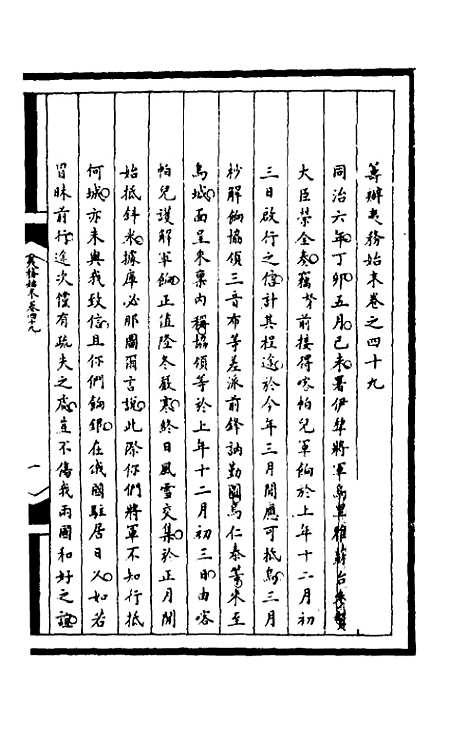 籌辦夷務始末卷之四十九
同治六年丁卯五月己未署伊犂將軍烏里雅蘇台參贊
大臣榮全奏竊努前接得喀帕兒軍餉於上年十二月初
三日啟行之信計其程途於今年三月間應可抵烏三月
杪解餉協領三音布等差派前鋒訥勤圖烏仁泰等來至
烏城面呈來稟內稱協領等於上年十二月初三日由喀
帕兒護解軍餉正值隆冬嚴寒終日風雪交集於正月間
始抵斜米據庫必那圖爾言說此際你們將軍不知行抵
何城亦未與我致信且你們餉銀在俄國駐居日久如若
冒昧前行途次儻有疏失之處豈不傷我兩國和好之誼
夷務始末卷四十九
一